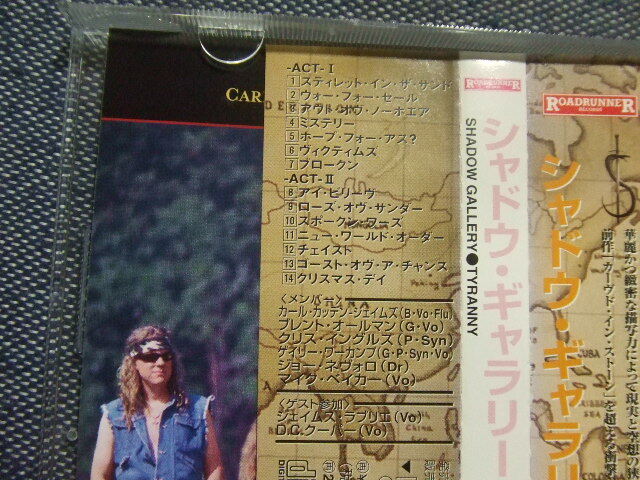 CAR
-ACT-I
1 スティレット・イン・ザ・サンド
2 ウォー・フォー・セール
3 アウト・オヴ・ノーホエア
4 ミステリー
5 ホープ・フォー・アス?
6 ヴィクティムズ
7 ブロークン
-ACT-II
8 アイ・ビリーヴ
9 ローズ・オヴ・サンダー
10 スポークン・ワーズ
11 ニュー・ワールド・オーダー
12 チェイスト
13 ゴースト・オヴ・ア・チャンス
14 クリスマス・デイ
〈メンバー〉
カール・カッデン・ジェイムズ(B・Vo・Flu)
ブレント・オールマン(G・Vo)
クリス・イングルズ(P・Syn)
ゲイリー・ワーカンプ(G・P・Syn・Vo)
ジョー・ネヴォロ(Dr)
マイク・ベイカー(Vo)
〈ゲスト参加〉
ジェイムズ・ラブリエ(Vo)
D.C.クーパー(Vo)
ROADRUNNER
シャドウ・ギャラリー
SHADOW GALLERY●TYRANNY
ROADRUNNER
RECORDS
シャドウ・ギャラリ
華麗かつ緻密な描写力によって現実と空想の狭
前作「カーヴド・イン・ストーン」を超える衝撃